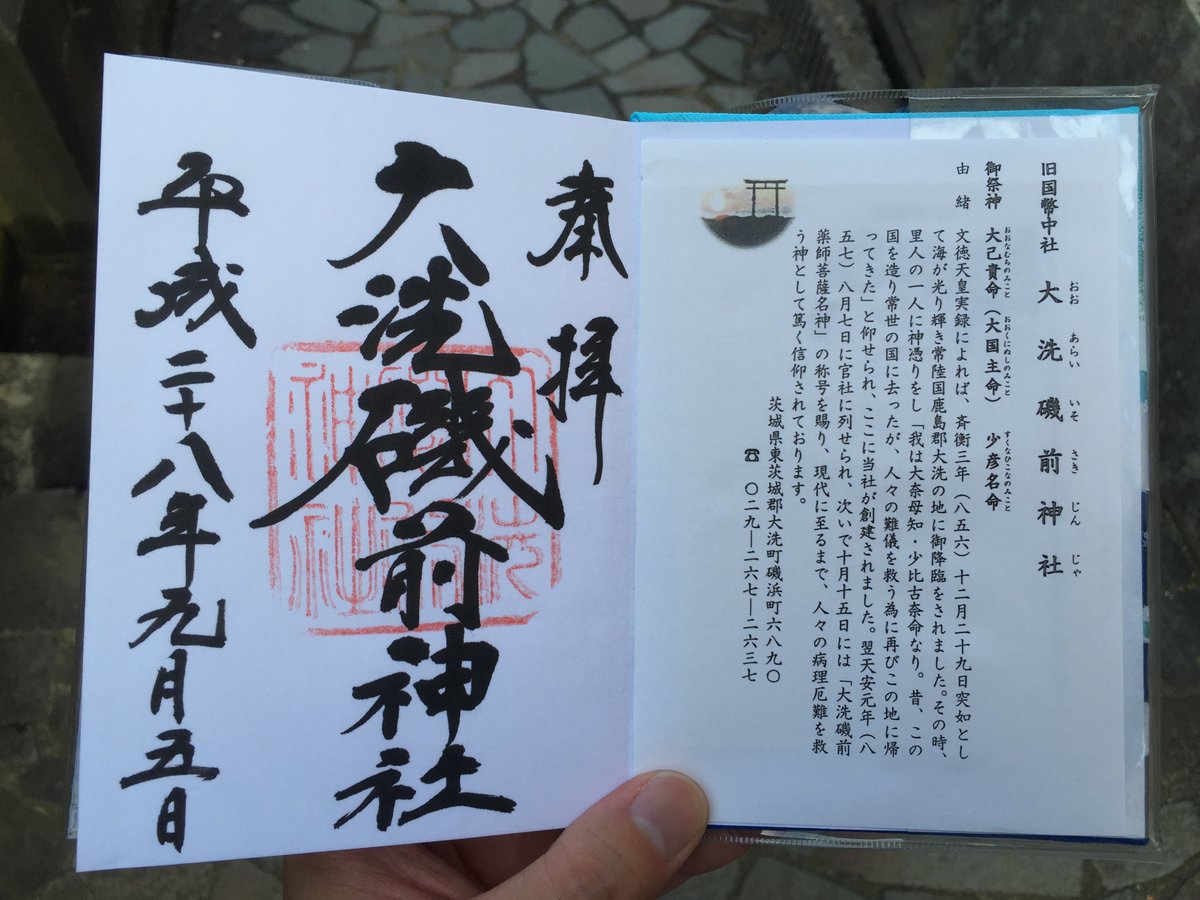 旧国幣中社 大洗磯前神社
おお あらい いそ さき じん じゃ
御祭神 大己貴命（大国主命） 少彦名命
おおなむちのみこと おおくにぬしのみこと すくなひこなのみこと
由緒
文徳天皇実録によれば、斉衡三年（八五六）十二月二十九日突如とし
て海が光り輝き常陸国鹿島郡大洗の地に御降臨をされました。その時、
里人の一人に神憑りをし「我は大奈母知・少比古奈命なり。昔、この
国を造り常世の国に去ったが、人々の難儀を救う為に再びこの地に帰
ってきた」と仰せられ、ここに当社が創建されました。翌天安元年（八
五七）八月七日に官社に列せられ、次いで十月十五日には「大洗磯前
薬師菩薩名神」の称号を賜り、現代に至るまで、人々の病理厄難を救
う神として篤く信仰されております。
茨城県東茨城郡大洗町磯浜町六八九〇
☎ 〇二九―二六七―二六三七
奉拝
大洗磯前神社
平成二十八年九月五日